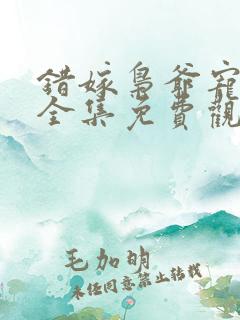 錯嫁梟爺寵
全集免費觀
毛加明
未经同意禁止转载